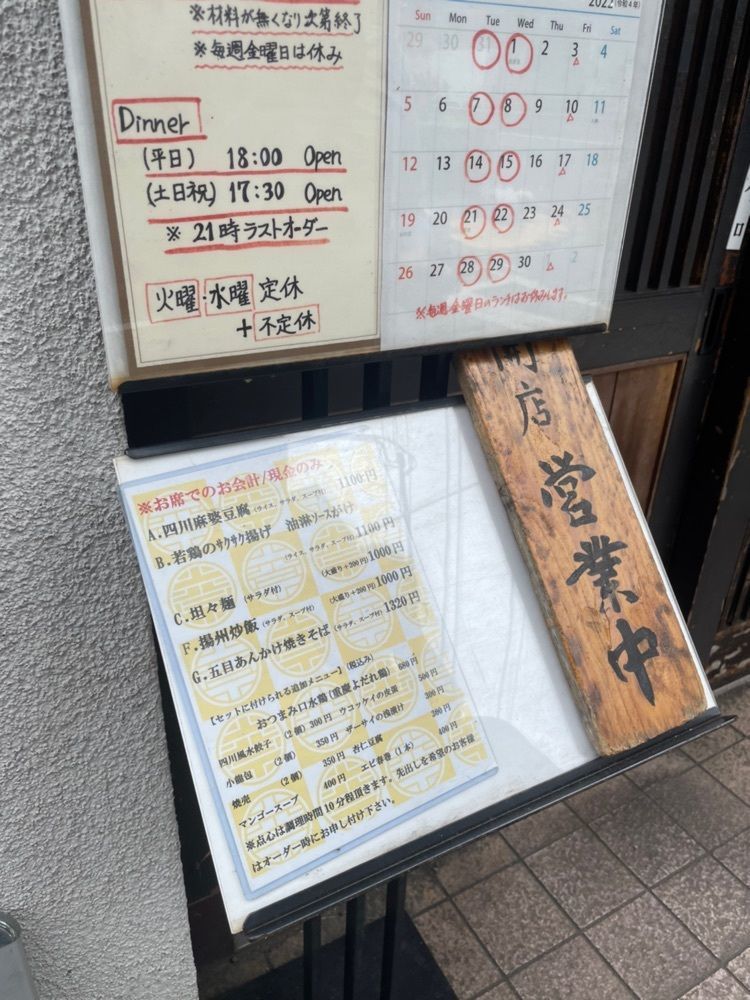 ※材料が無くなり次第終了
※毎週金曜日は休み
Dinner
(平日) 18:00 Open
(土日祝) 17:30 Open
※ 21時ラストオーダー
火曜・水曜 定休
+不定休
2022(令和4年)
Sun Mon Tue Wed Thu Fri Sat
29 30 31 1 2 3 4
5 6 7 8 9 10 11
12 13 14 15 16 17 18
19 20 21 22 23 24 25
26 27 28 29 30 1 2
※毎週金曜日のランチはお休みします。
開店
営業中
※お席でのお会計/現金のみ
A.四川麻婆豆腐 (ライス、サラダ、スープ付) 1100円
B.若鶏のサクサク揚げ 油淋ソースがけ
(ライス、サラダ、スープ付) 1100円
C.坦々麺 (サラダ付) (大盛り+200円) 1000円
F.揚州炒飯 (サラダ、スープ付) (大盛り+200円) 1000円
G.五目あんかけ焼きそば (サラダ、スープ付) 1320円
【セットに付けられる追加メニュー】(税込み)
おつまみ口水鶏(重慶よだれ鶏) 680円
四川風水餃子 (2個) 300円 ウコッケイの皮蛋 500円
小龍包 (2個) 350円 ザーサイの浅漬け 300円
焼売 (2個) 350円 杏仁豆腐 300円
マンゴースープ 400円 エビ春巻(1本) 400円
※点心は調理時間10分程頂きます。先出しを希望のお客様
はオーダー時にお申し付け下さい。